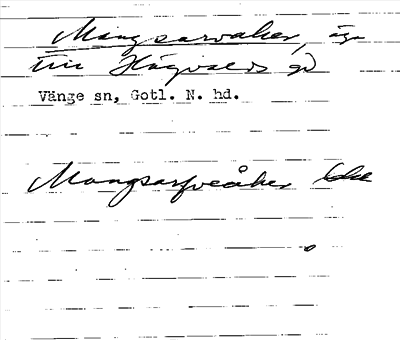 Mangsarvaker, äga
till Hägvalds gd
Vänge sn, Gotl. N. hd.
Mangsarveåker